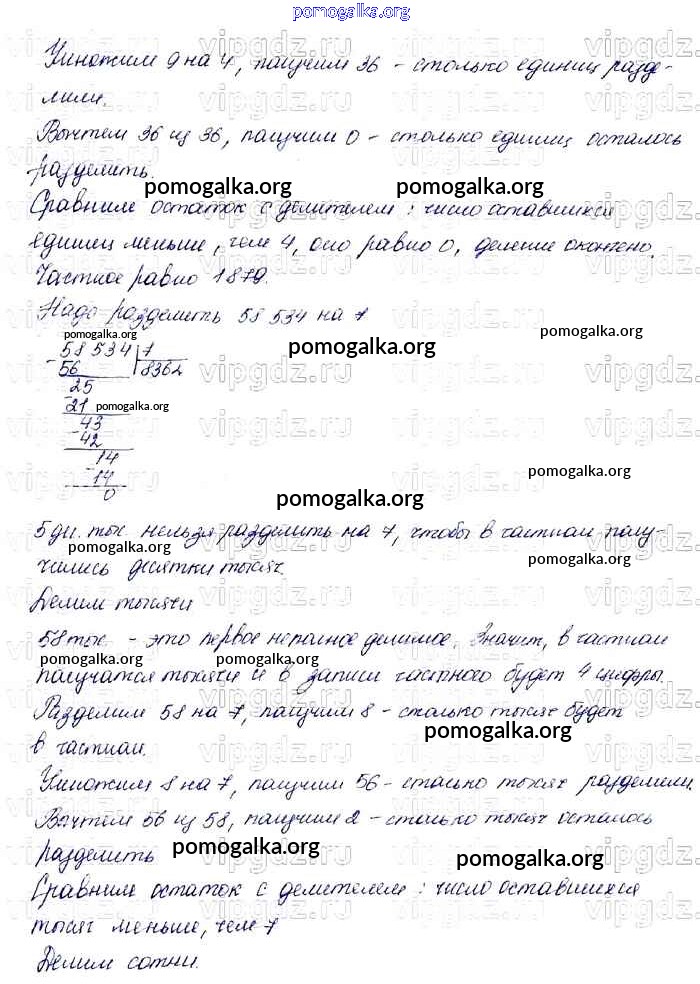 pomogalka.org
Умножим 9 на 4, получим 36 – столько единиц разде-
лили.
Вычтем 36 из 36, получим 0 – столько единиц осталось
разделить.
pomogalka.org
pomogalka.org
Сравним остаток с делителем: число оставшихся
единиц меньше, чем 4, оно равно 0, деление окончено.
Частное равно 1879.
Надо разделить 58 534 на 7
pomogalka.org
pomogalka.org
pomogalka.org
- 58 534 | 7
56 8362
- 25
21
pomogalka.org
- 43
42
- 14
14
0
pomogalka.org
pomogalka.org
5 дес. тыс. нельзя разделить на 7, чтобы в частном полу-
pomogalka.org
pomogalka.org
чились десятки тысяч.
Делим тысячи
58 тыс. – это первое неполное делимое. Значит, в частном
pomogalka.org
pomogalka.org
получатся тысячи и в записи частного будет 4 цифры.
Разделим 58 на 7, получим 8 – столько тысяч будет
pomogalka.org
в частном.
Умножим 8 на 7, получим 56 – столько тысяч разделили.
Вычтем 56 из 58, получим 2 – столько тысяч осталось
разделить
pomogalka.org
pomogalka.org
Сравним остаток с делителем: число оставшихся
тысяч меньше, чем 7
Делим сотни.
vipgdz.ru